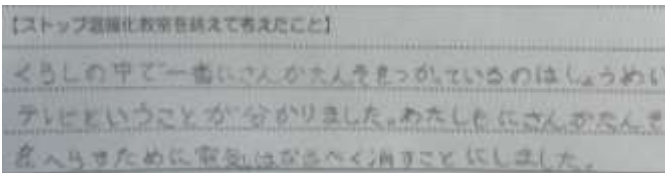 【ストップ温暖化教室を終えて考えたこと】
くらしの中で一番にさんかたんそをつかっているのはしょうめい
テレビということが分かりました。わたしもにさんかたんそ
をへらすために電気はなるべく消すことにしました。